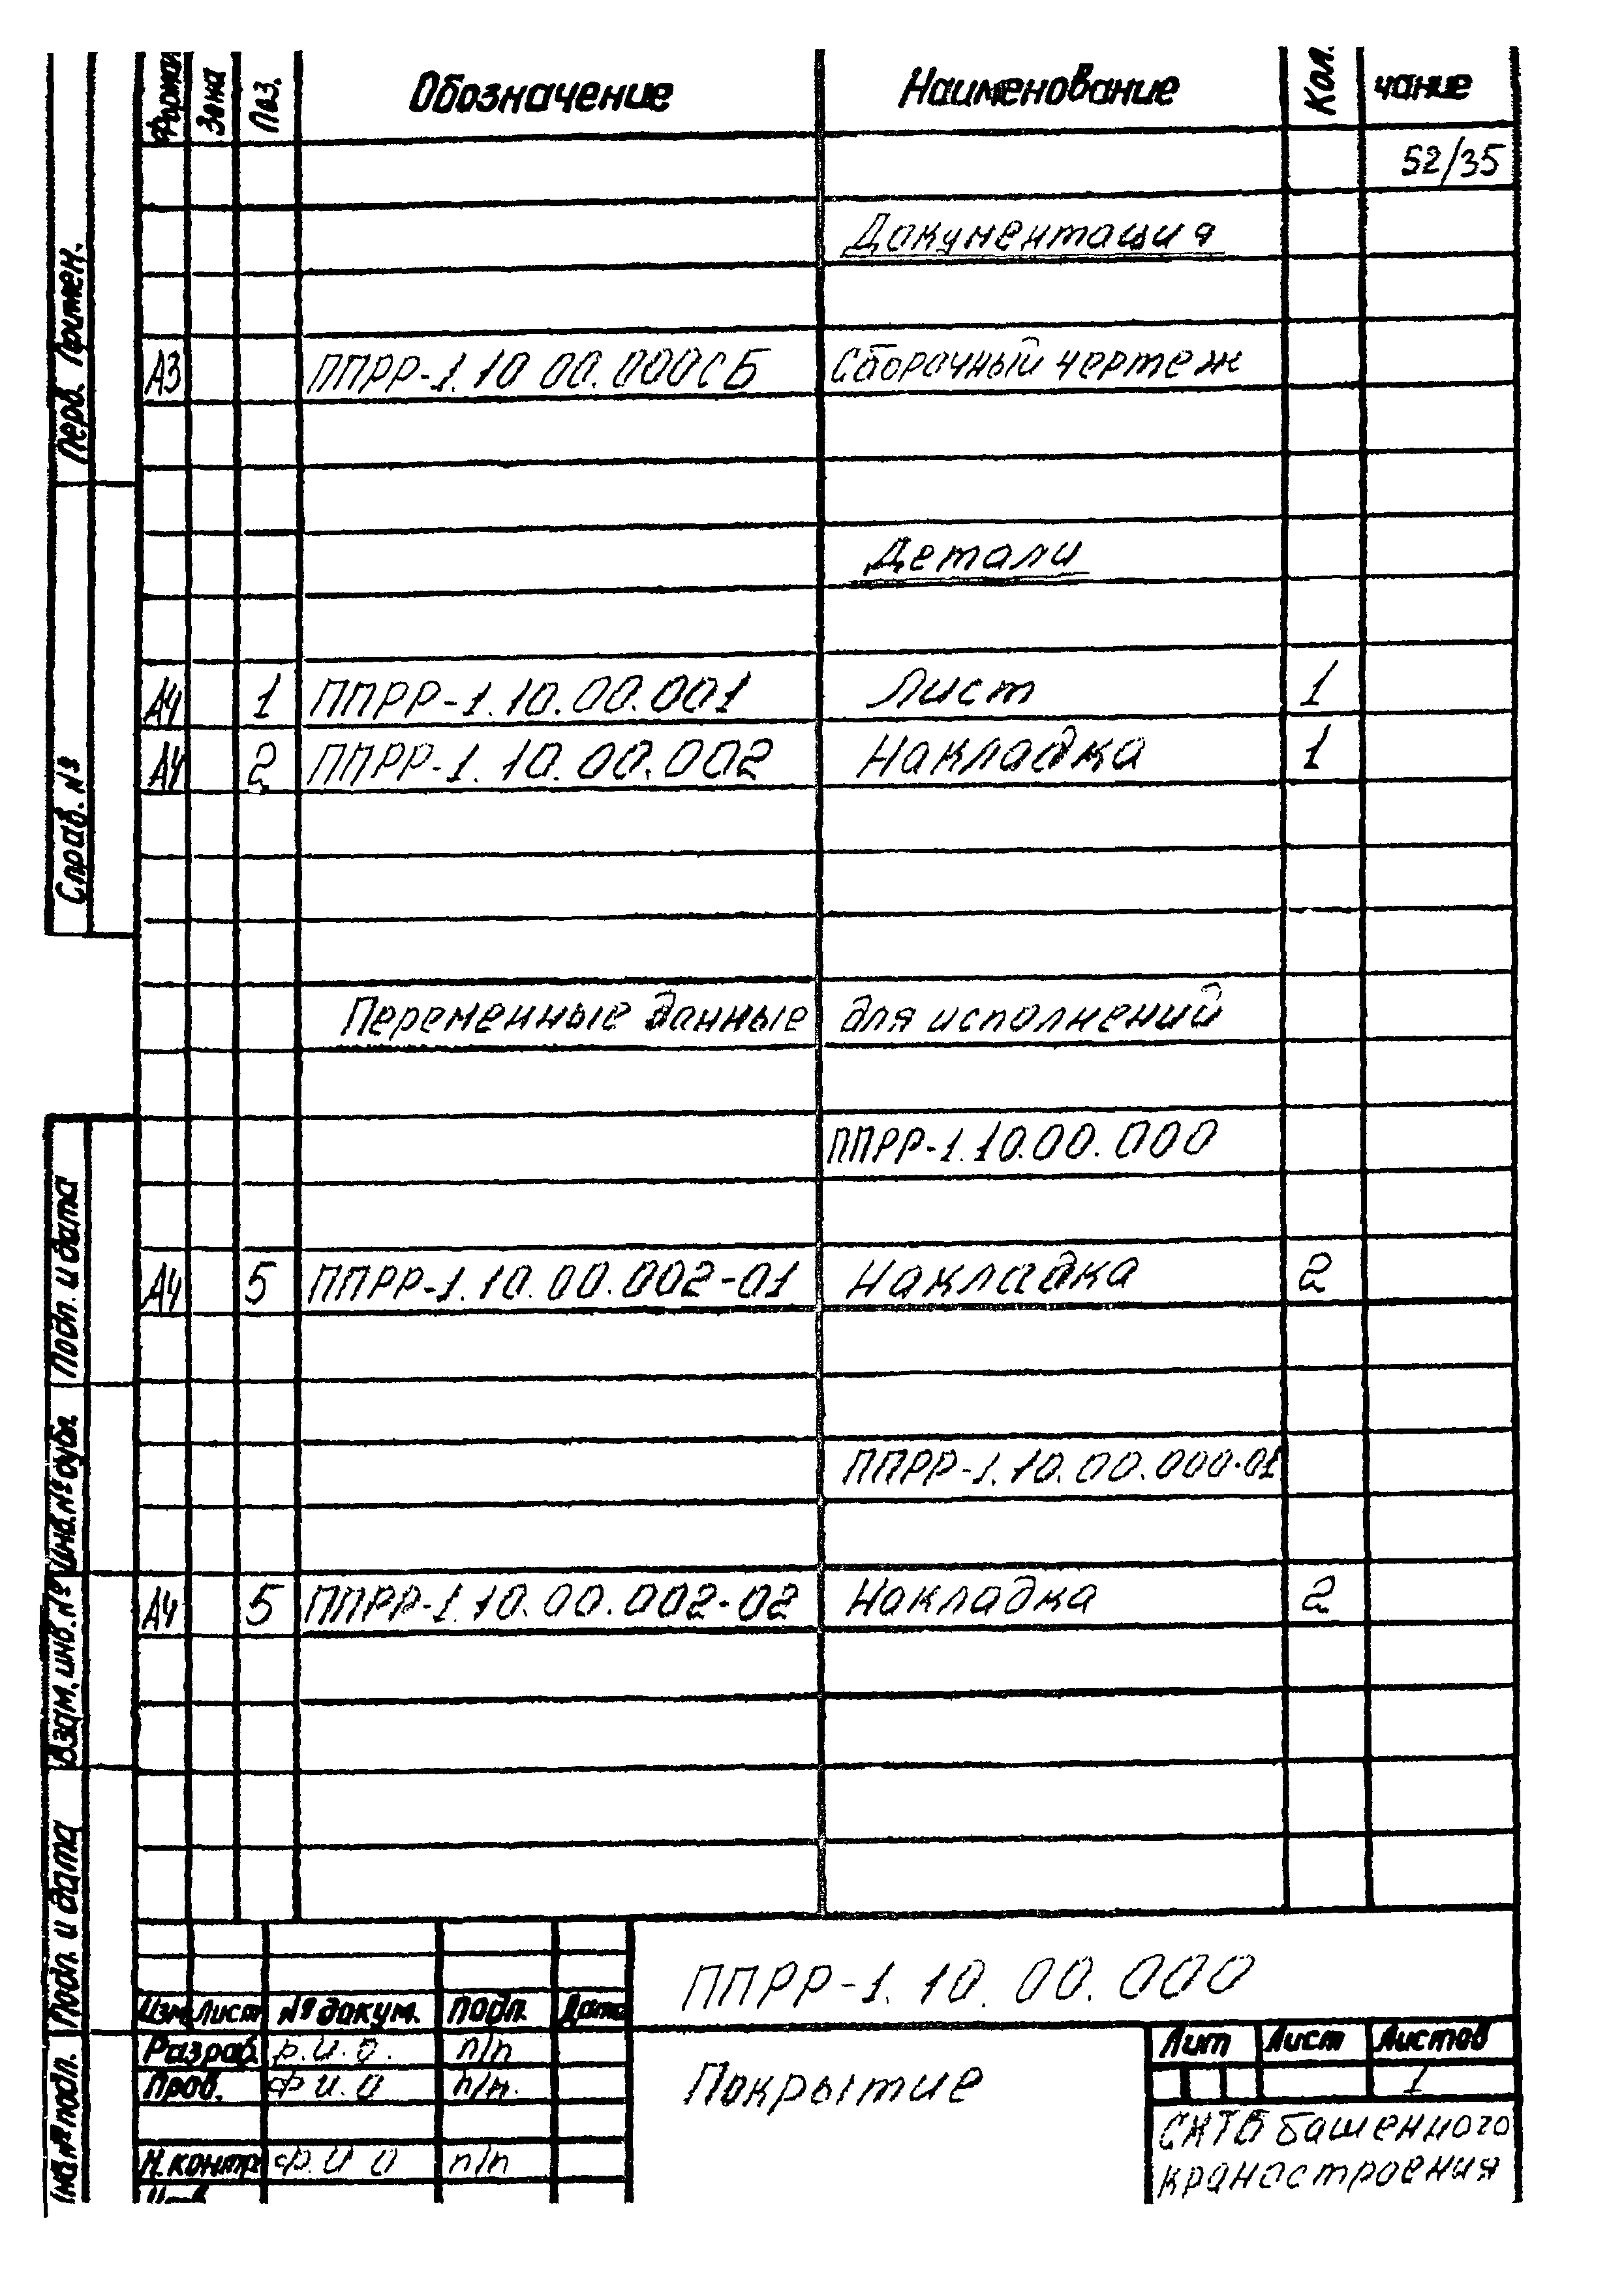 Формат Зона Поз. Обозначение Наименование Кол. чание
52/35
Документация
А3 ППРР-1.10 00.000СБ Сборочный чертеж
Детали
А4 1 ППРР-1.10.00.001 Лист 1
А4 2 ППРР-1.10.00.002 Накладка 1
Переменные данные для исполнений
ППРР-1.10.00.000
А4 5 ППРР-1.10.00.002-01 Накладка 2
ППРР-1.10.00.000-01
А4 5 ППРР-1.10.00.002-02 Накладка 2
Перв. Примен.
Справ. №
Подп. и дата
Инв.№ дубл.
Взам. инв. №
Подп. и дата
Инв № подл.
ППРР-1.10.00.000
Изм Лист № докум. Подп. Дата
Разраб. Ф.И.О. п/п
Пров. Ф И.О п/п.
Н.контр. Ф.И О п/п
Покрытие
Лит Лист Листов
1
СКТБ башенного
краностроения